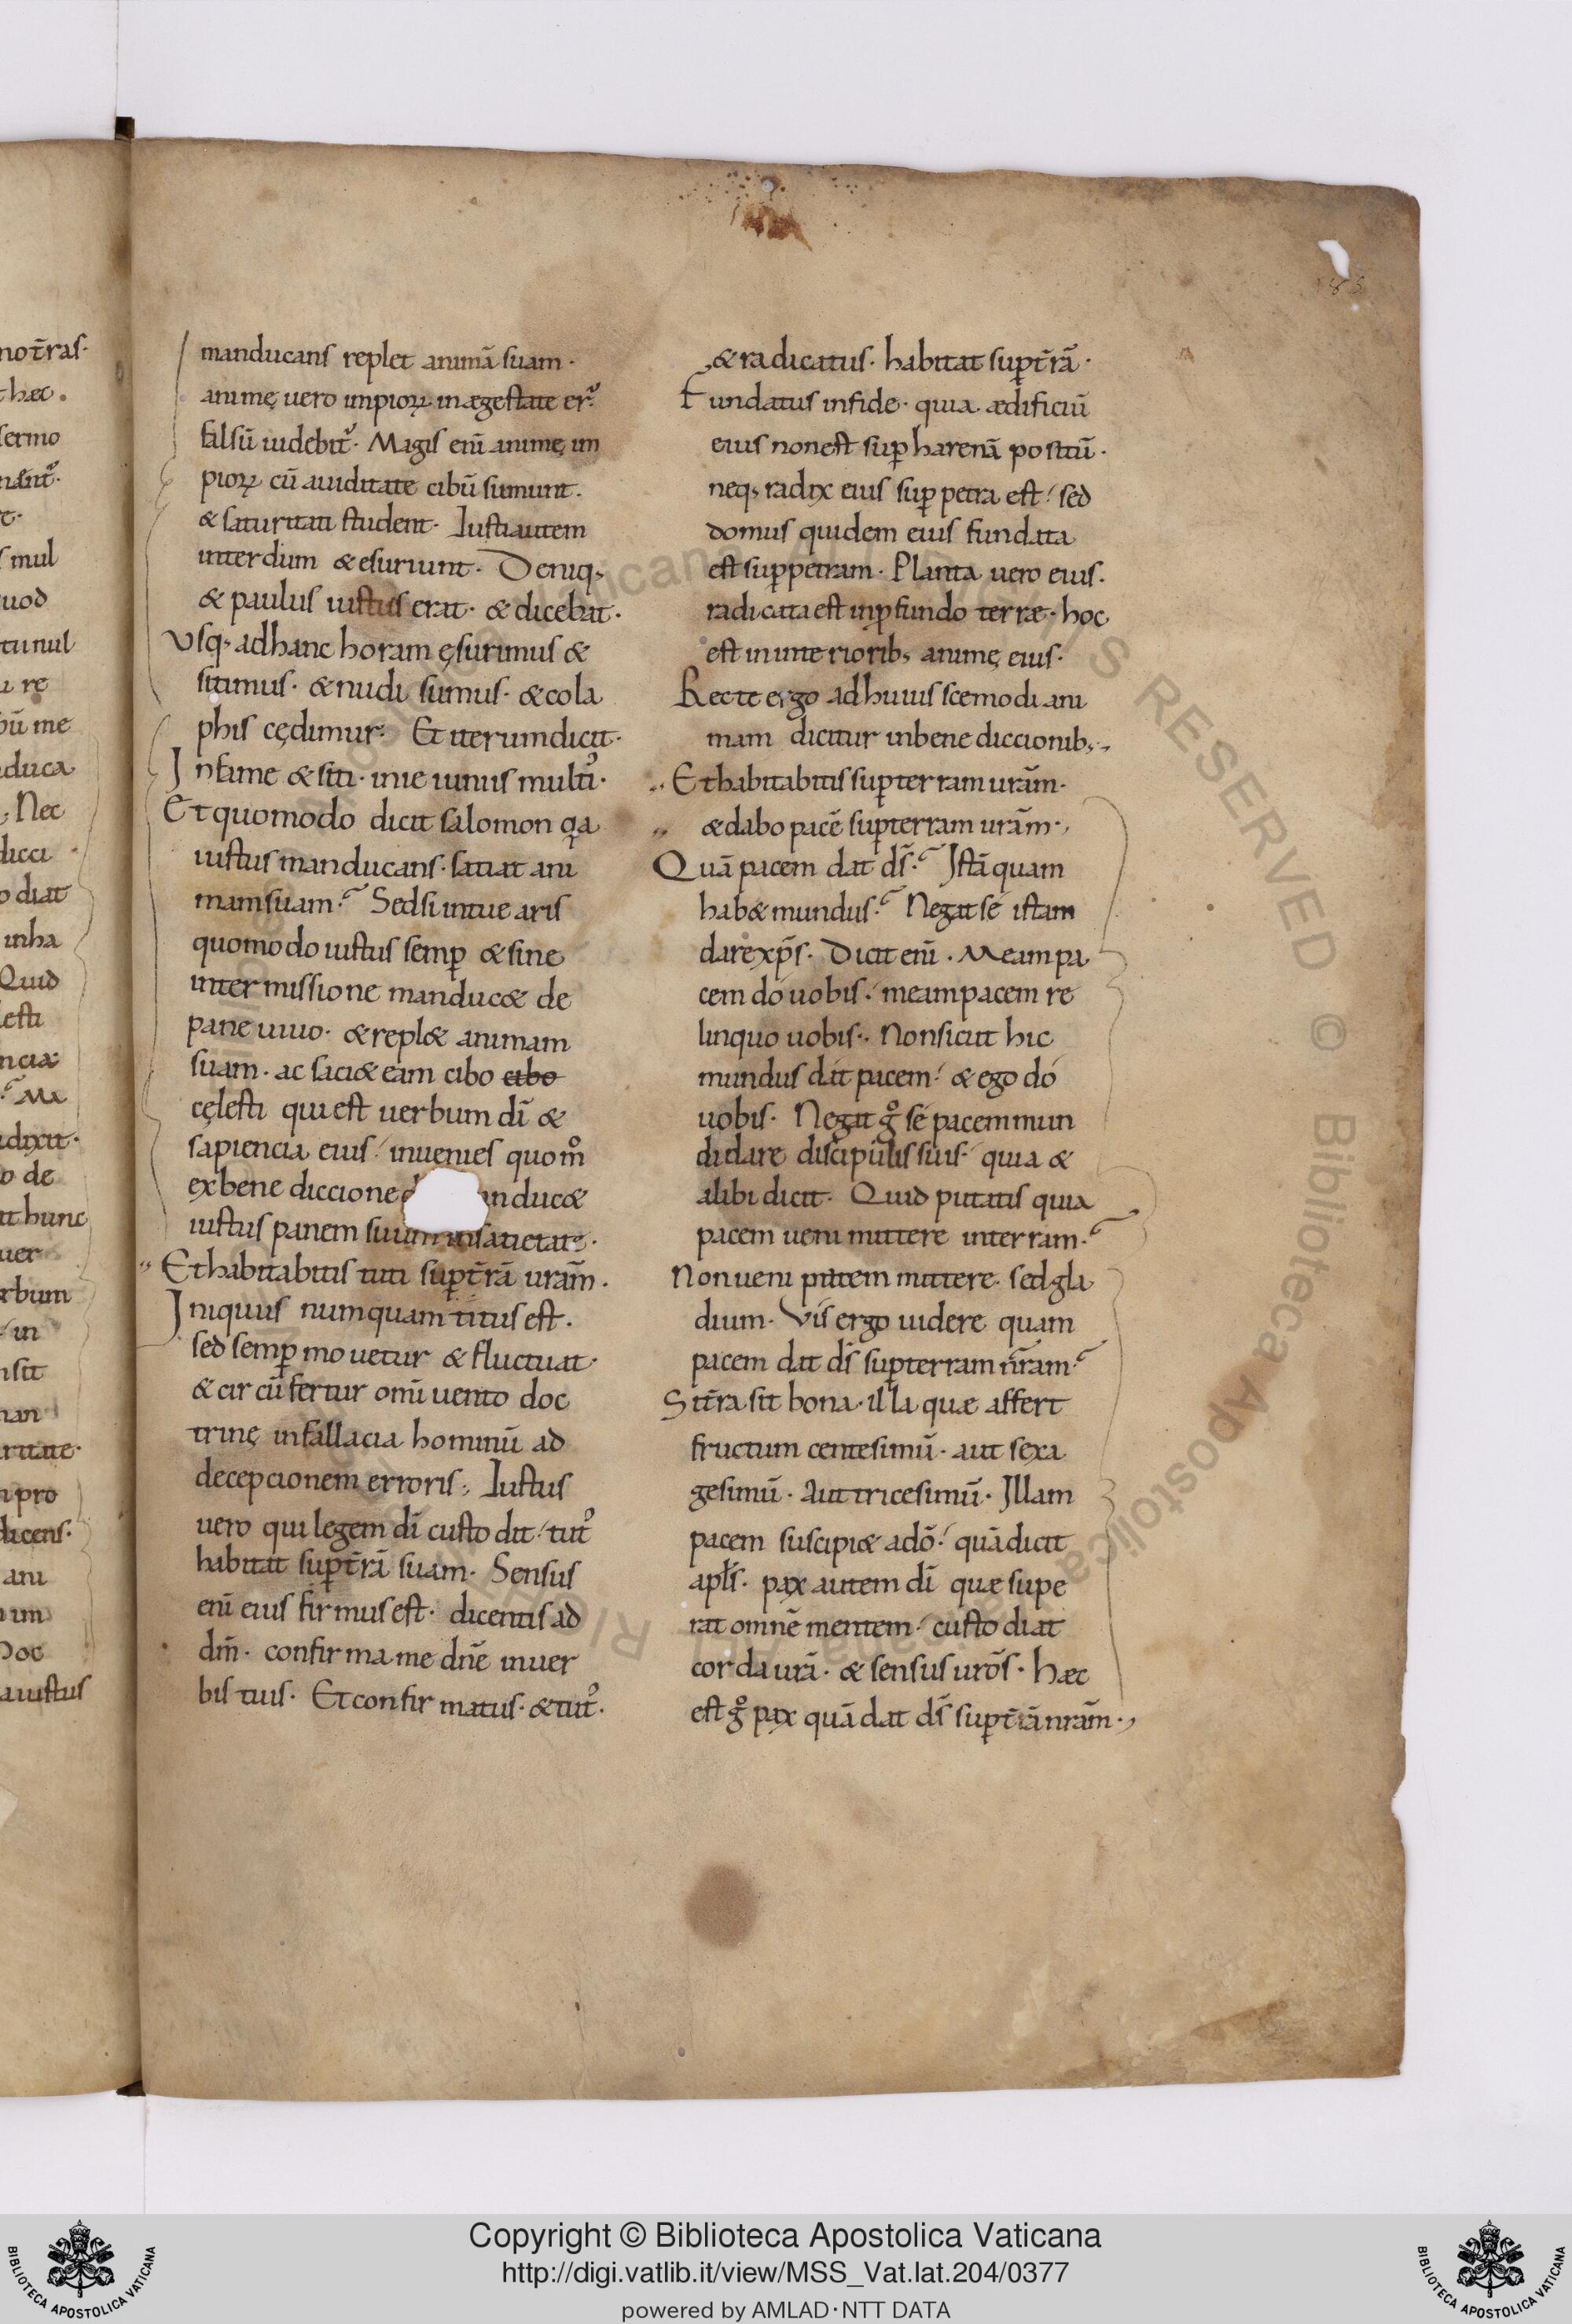 manducans replet animā suam·
animę uero impioꝝ in ægestate er᷒·
falsū uidebit᷒· Magis enī animę im
pioꝝ cū auiditate cibū sumunt·
& saturitati student· Iusti autem
interdum & esuriunt· Deniq;
& paulus iustus erat· & dicebat·
Vsq; ad hanc horam ęsurimus &
sitimus· & nudi sumus· & cola
phis cędimur· Et iterum dicit·
In fame & siti· in ieiuniis multi᷒·
Et quomodo dicit salomon qa
iustus manducans· satiat ani
mam suam·? Sed si intuearis
quomodo iustus semꝑ & sine
intermissione manduc& de
pane uiuo· & repl& animam
suam· ac saci& eam cibo cibo
cęlesti qui est uerbum dī &
sapiencia eius· inuenies quom̊
ex bene diccione d nduc&
iustus panem suum in satietate·
Et habitabitis tuti suꝑ t̄rā urām·
Iniquus numquam titus est·
sed semꝑ mouetur & fluctuat·
& circūfertur omī uento doc
trinę in fallacia hominū ad
decepcionem erroris; Iustus
uero qui legem dī custodit· tut᷒
habitat suꝑ t̄rā suam· Sensus
enī eius firmus est· dicentis ad
dm̄· confirma me dnē in uer
bis tuis· Et confirmatus· & tut᷒·
& radicatus· habitat suꝑ t̄rā·
Fundatus in fide· quia ædificiū
eius non est suꝑ harenā positū·
neq; radix eius suꝑ petra est· sed
domus quidem eius fundata
est suꝑ petram· Planta uero eius·
radicata est in ꝓfundo terræ· hoc
est in interiorib; animę eius·
Recte ergo ad huiuscemodi ani
mam dicitur in bene diccionib;·
Et habitabitis suꝑ terram urām·
& dabo pacē suꝑ terram urām·
Quā pacem dat ds̄·? Istā quam
hab& mundus·? Negat sé istam
dare xp̄s· Dicit enī· Meam pa
cem dó uobis· meam pacem re
linquo uobis· Non sicut hic
mundus dat pacem· & ego dó
uobis· Negat g̊ sé pacem mun
di dare discipulis suis· quia &
alibi dicit· Quid putatis quia
pacem ueni mittere in terram·?
Non ueni patem mittere· sed gla
dium· Vis ergo uidere quam
pacem dat ds̄ suꝑ terram n̄ram·?
Si t̄ra sit bona· illa quæ affert
fructum centesimū· aut sexa
gesimū· Aut tricesimū· Illam
pacem suscipi& a dō· quā dicit
apłs· pax autem dī quæ supe
rat omnē mentem· custodiat
corda urā· & sensus urōs· hæc
est g̊ pax quā dat ds̄ suꝑ t̄rā nrām·
no t̄ras·
hæc·
sermo
nánt᷒·
mul
uod
tunul
u rę
bū me
duca
Nec
dicci
odiat
inha
Quid
lesti
nciæ
Me
dixit·
o de
at hunc
uer
rbum
in
nsit
nan
ritate·
pro
dicens·
ani
im
Doc
a iustus
Copyright © Biblioteca Apostolica Vaticana
http://digi.vatlib.it/view/MSS_Vat.lat.204/0377
powered by AMLAD·NTT DATA
BIBLIOTECA APOSTOLICA VATICANA
BIBLIOTECA APOSTOLICA VATICANA